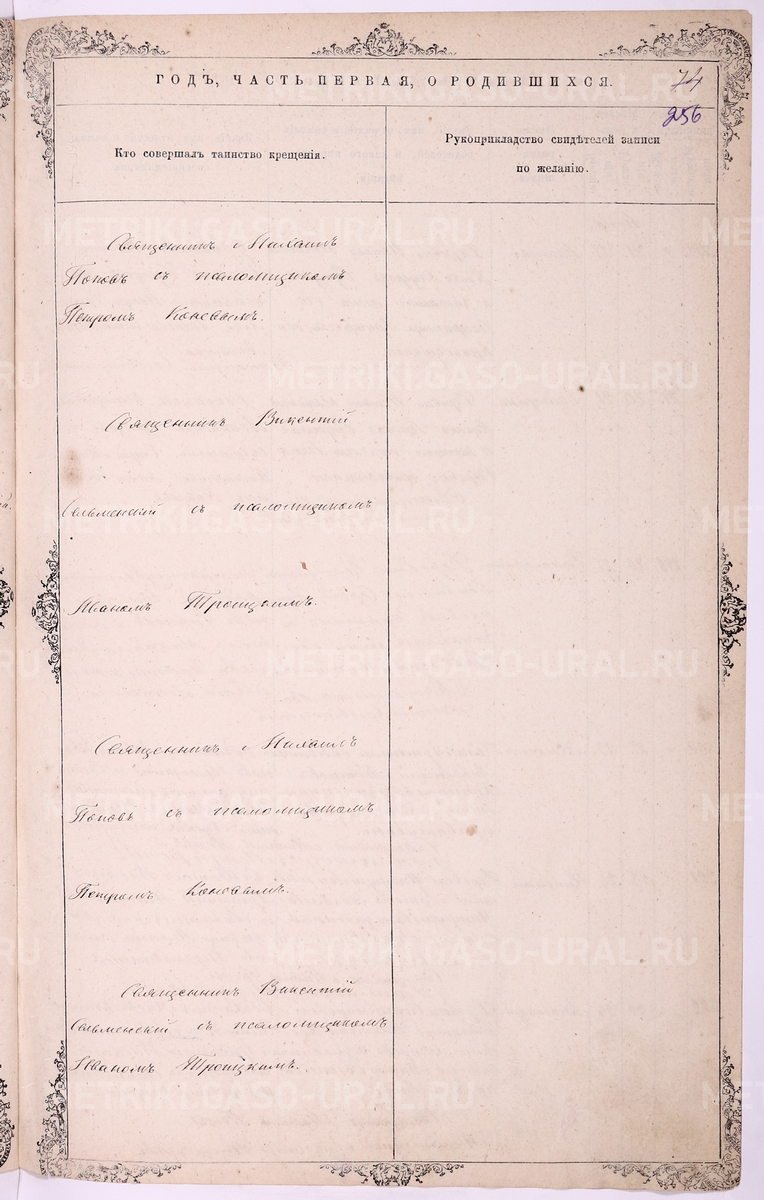 ГОДЪ, ЧАСТЬ ПЕРВАЯ, О РОДИВШИХСЯ.
74
256
Кто совершалъ таинство крещенія.
Рукоприкладство свидѣтелей записи
по желанію.
Священникъ Михаилъ
Поповъ съ псаломщикомъ
Петромъ Коневымъ.
Священникъ Викентій
Сельменскій съ псаломщикомъ
Иваномъ Троицкимъ.
Священникъ Михаилъ
Поповъ съ псаломщикомъ
Петромъ Коневымъ.
Священникъ Викентій
Сельменскій съ псаломщикомъ
Иваномъ Троицкимъ.
METRIKI.GASO-URAL.RU